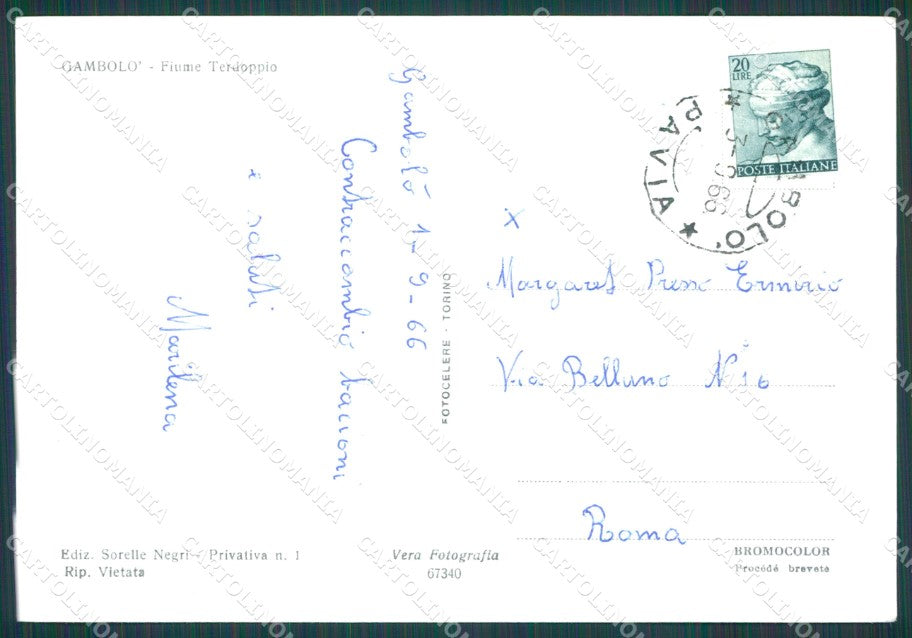 GAMBOLO' - Fiume Terdoppio
20
LIRE
POSTE ITALIANE
PAVIA
Gambolò 1-9-66
Contraccambiò baccioni
e saluti
Marilena
FOTOCELERE - TORINO
x
Margaret Presso Ermirio
Via Belluno N° 16
Roma
Ediz. Sorelle Negri - Privativa n. 1
Rip. Vietata
Vera Fotografia
67340
BROMOCOLOR
Procédé breveté
CARTOLINOMANIA